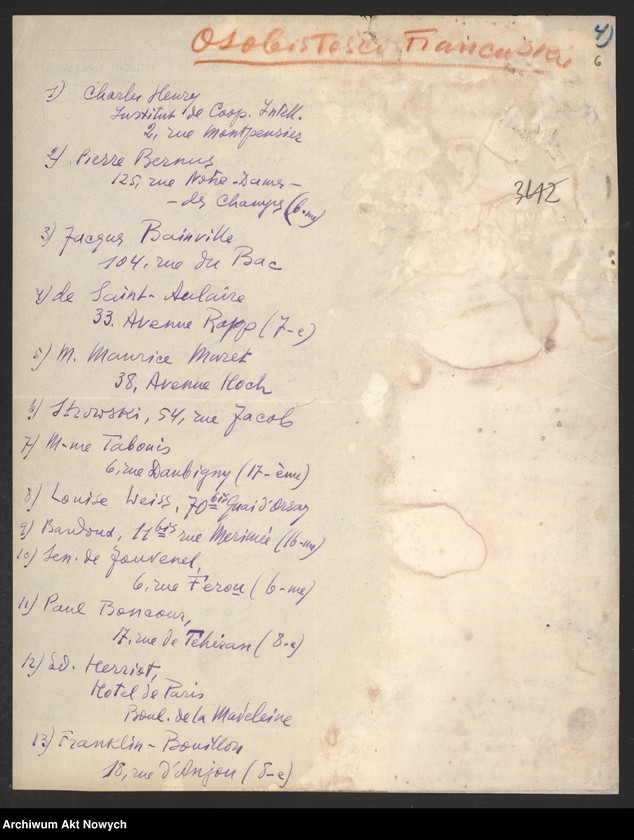 Osobistości Francuskie
4)
6
1) Charles Henry
Institut de Coop. Intell.
2, rue Montpensier
2) Pierre Bernus
125, rue Notre-Dame-
- des Champs (6-me)
3642
3) Jacques Bainville
104, rue du Bac
4) de Saint-Aulaire
33. Avenue Rapp (7-e)
5) M. Maurice Muret
38, Avenue Hoch
6) Strowski, 54, rue Jacob
7) M-me Tabouis
6, rue Daubigny (17-ème)
8) Louise Weiss, 70 bis Quai d'Orsay
9) Bardoux, 11 bis rue Merimée (16-me)
10) Sen. de Jouvenel,
6, rue Ferou (6-me)
11) Paul Boncour,
17, rue de Téhéran (8-e)
12) Ed. Herriot,
Hotel de Paris
Boul. de la Madeleine
13) Franklin-Bouillon
18, rue d'Anjou (8-e)
Archiwum Akt Nowych